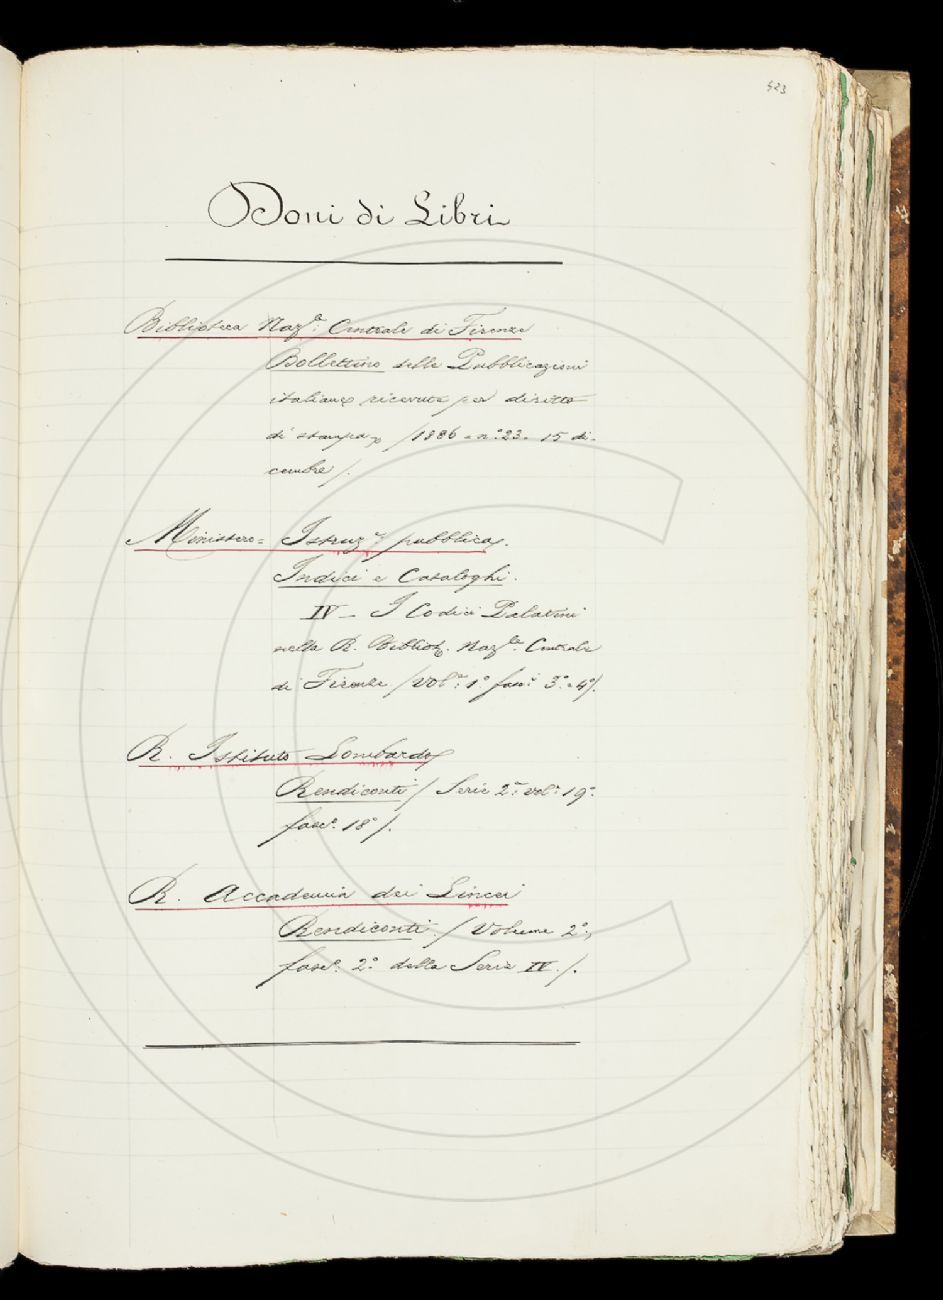 423
Doni di Libri
Biblioteca Naz.e: Centrale di Firenze
Bollettino delle Pubblicazioni
italiane ricevute per diritto
di stampa /1886 - n.° 23 - 15 di-
cembre/.
Ministero = Istruz.e pubblica.
Indici e Cataloghi.
IV - I Codici Palatini
nella R. Bibliot. Naz.le Centrale
di Firenze /Vol.e: 1° fasc.i 3° - 4°/.
R. Istituto Lombardo
Rendiconti /Serie 2.a vol.e 19°
fasc.° 18°/.
R. Accademia dei Lincei
Rendiconti /Volume 2°,
fasc.° 2° della Serie IV./.